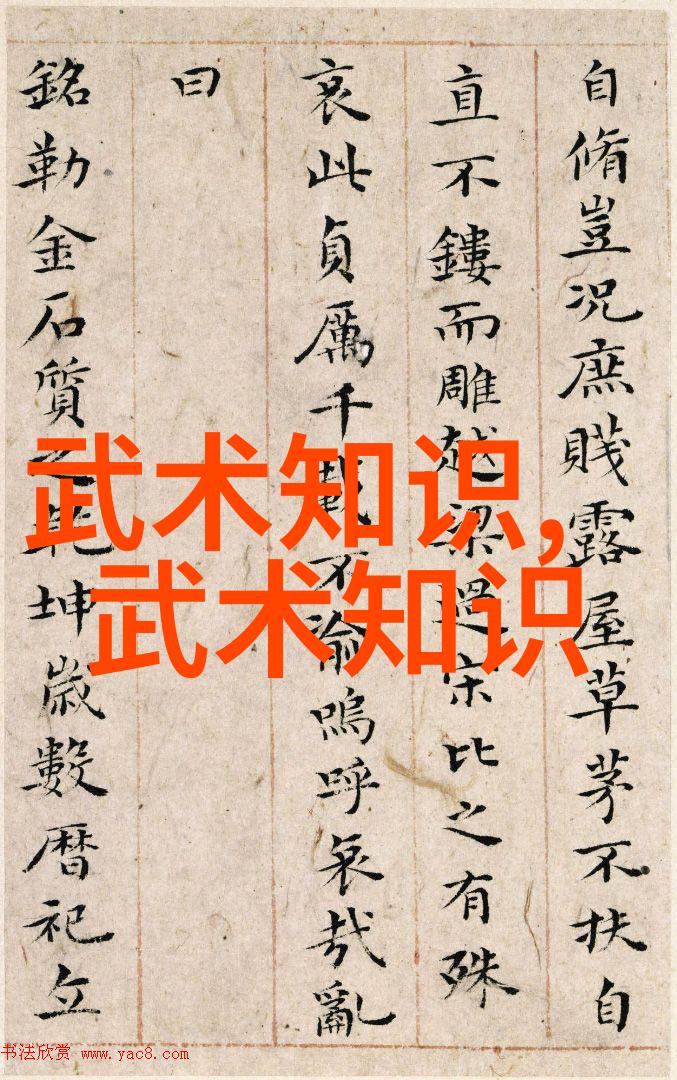 自脩豈況庶賤露屋草茅不扶自
直不鏤而雕越梁過宋比之有殊
哀此貞厲千載不渝嗚呼哀哉亂
曰
銘勒金石質之乾坤歲數暦祀立
武术知识,
武术知识
书法欣赏 www.yac8.com